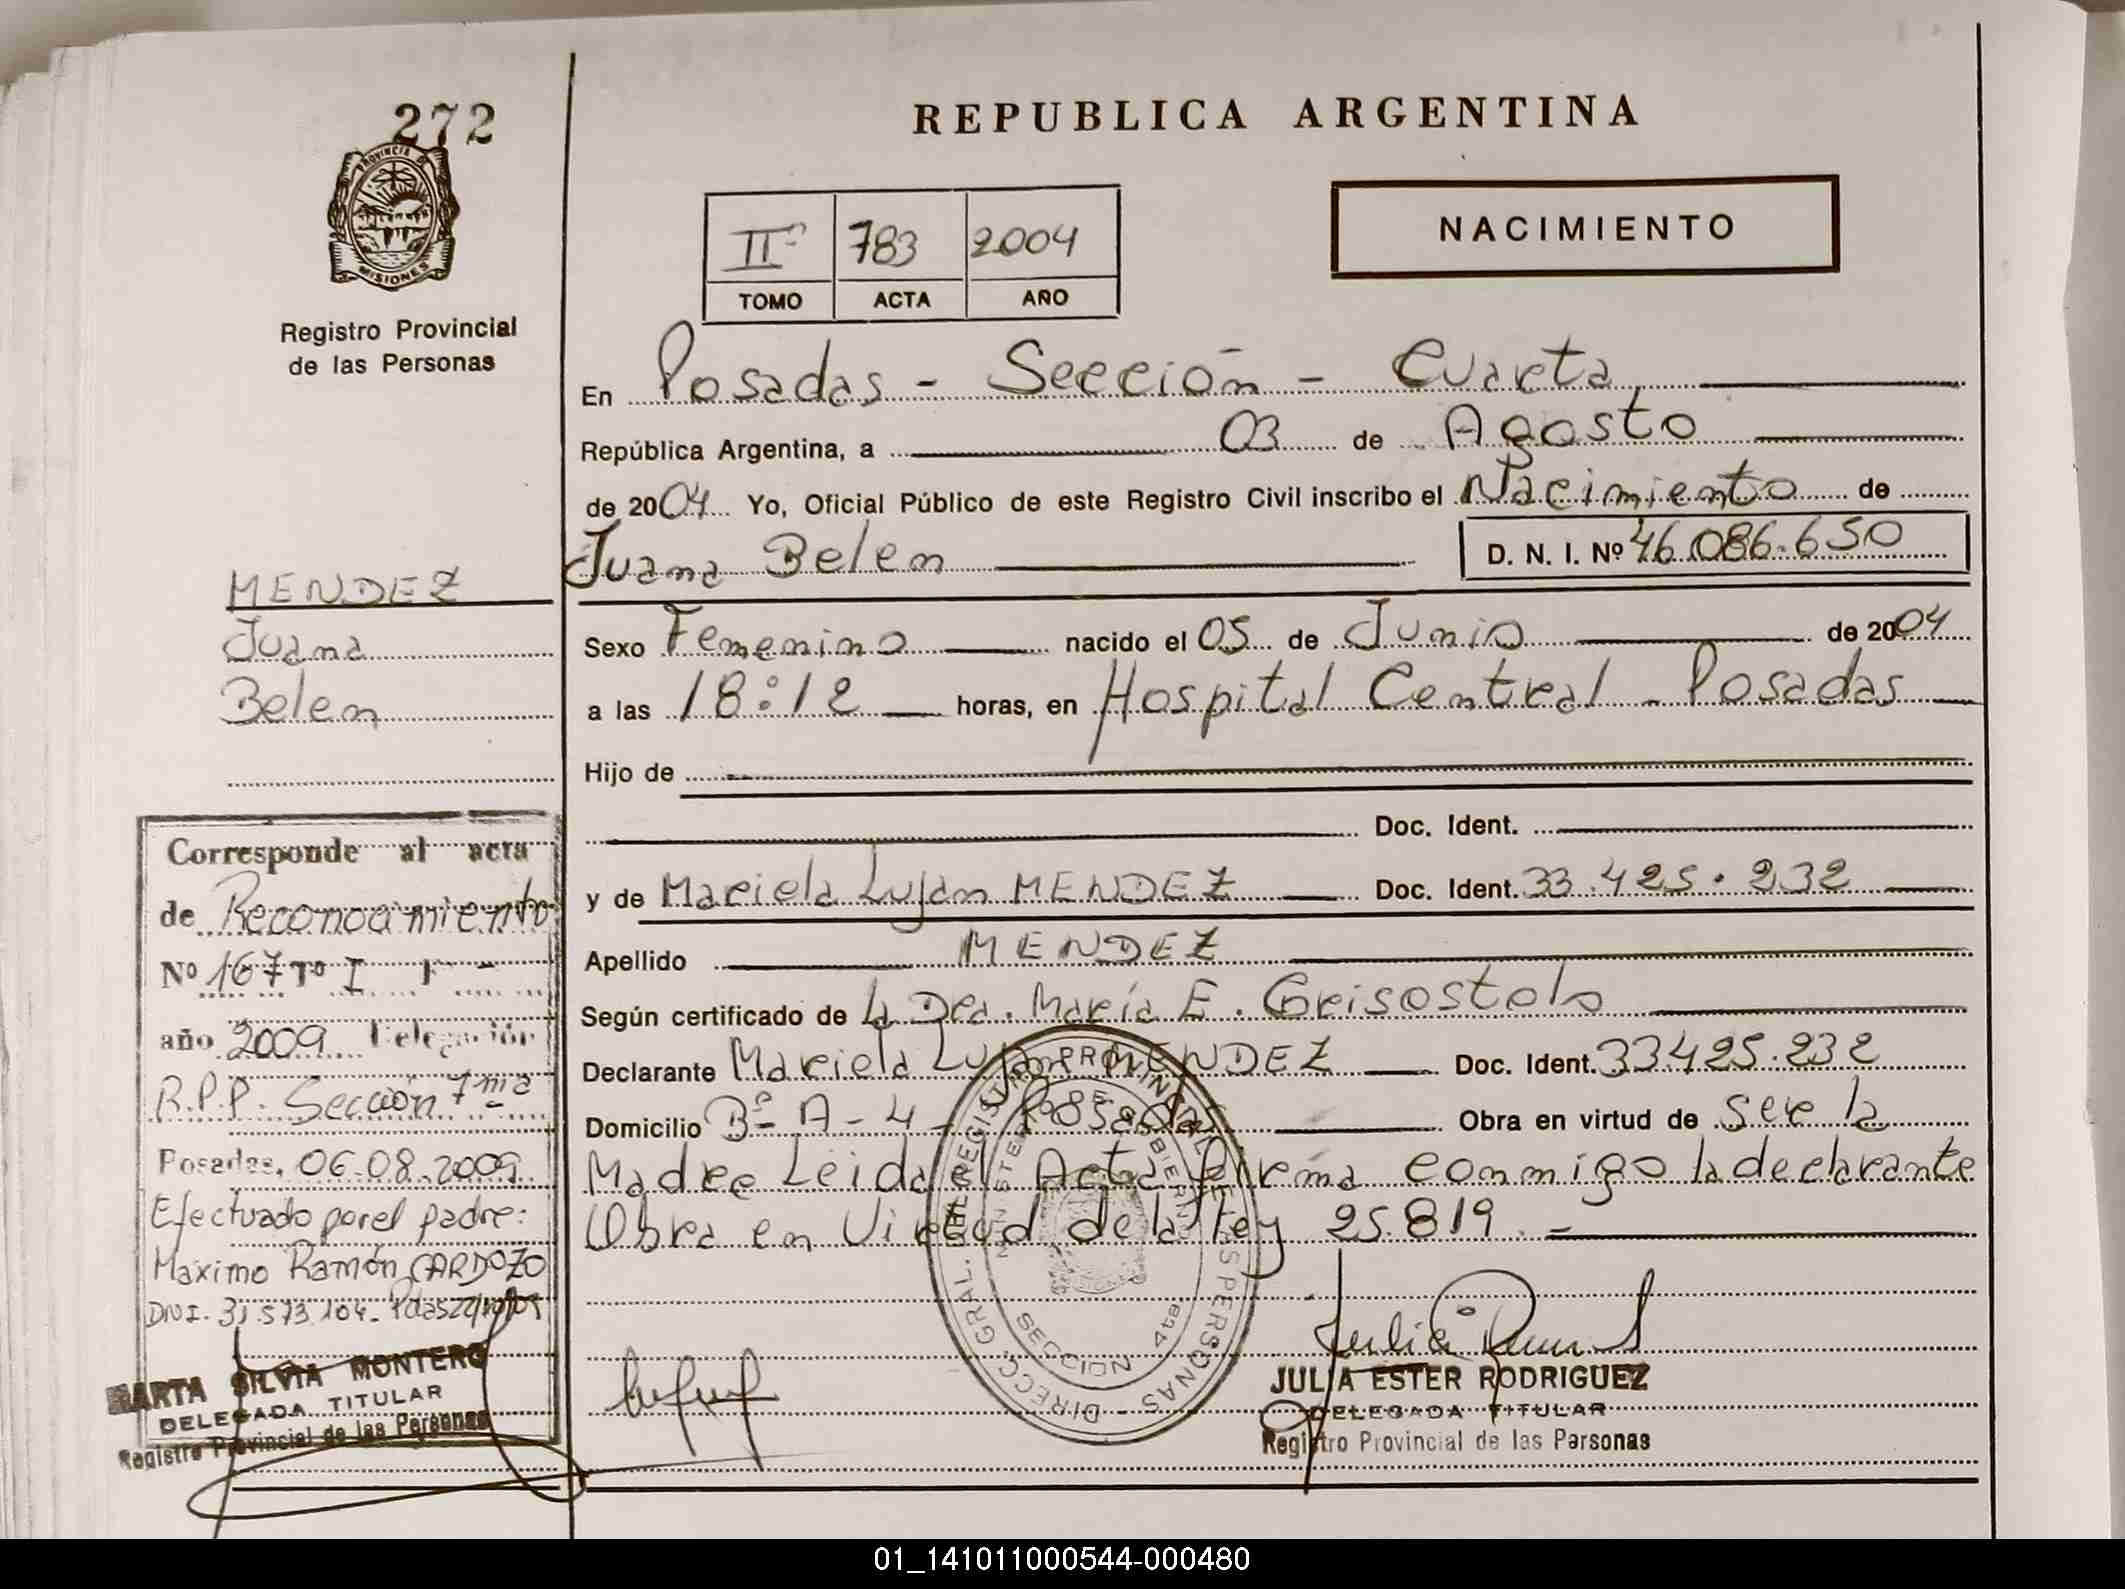 272
PROVINCIA DE
MISIONES
Registro Provincial
de las Personas
REPUBLICA ARGENTINA
NACIMIENTO
IIº 783 2004
TOMO ACTA AÑO
En Posadas - Sección - Cuarta
República Argentina, a 03 de Agosto
de 2004 Yo, Oficial Público de este Registro Civil inscribo el Nacimiento de
Juana Belen D. N. I. Nº 46.086.650
MENDEZ
Juana
Belen
Sexo Femenino nacido el 05 de Junio de 2004
a las 18:12 horas, en Hospital Central - Posadas
Hijo de
Doc. Ident.
y de Mariela Lujan MENDEZ Doc. Ident. 33.425.232
Apellido MENDEZ
Según certificado de la Dra. María E. Grisostolo
Declarante Mariela Lujan MENDEZ Doc. Ident. 33.425.232
Domicilio Bº A-4 - Posadas Obra en virtud de ser la
Madre Leida el Acta firma conmigo la declarante
Obra en Virtud de la Ley 25.819.-
Corresponde al acta
de Reconocimiento
Nº 167 Tº I F -
año 2009 Delegación
R.P.P. Sección 7ma
Posadas, 06.08.2009
Efectuado por el padre:
Maximo Ramón CARDOZO
DNI. 31.573.104.-
MARTA SILVIA MONTERO
DELEGADA TITULAR
Registro Provincial de las Personas
DIRECC. GRAL. DEL REGISTRO PROVINCIAL DE LAS PERSONAS
MINISTERIO DE GOBIERNO
SECCION 4ta
JULIA ESTER RODRIGUEZ
DELEGADA TITULAR
Registro Provincial de las Personas
01_141011000544-000480